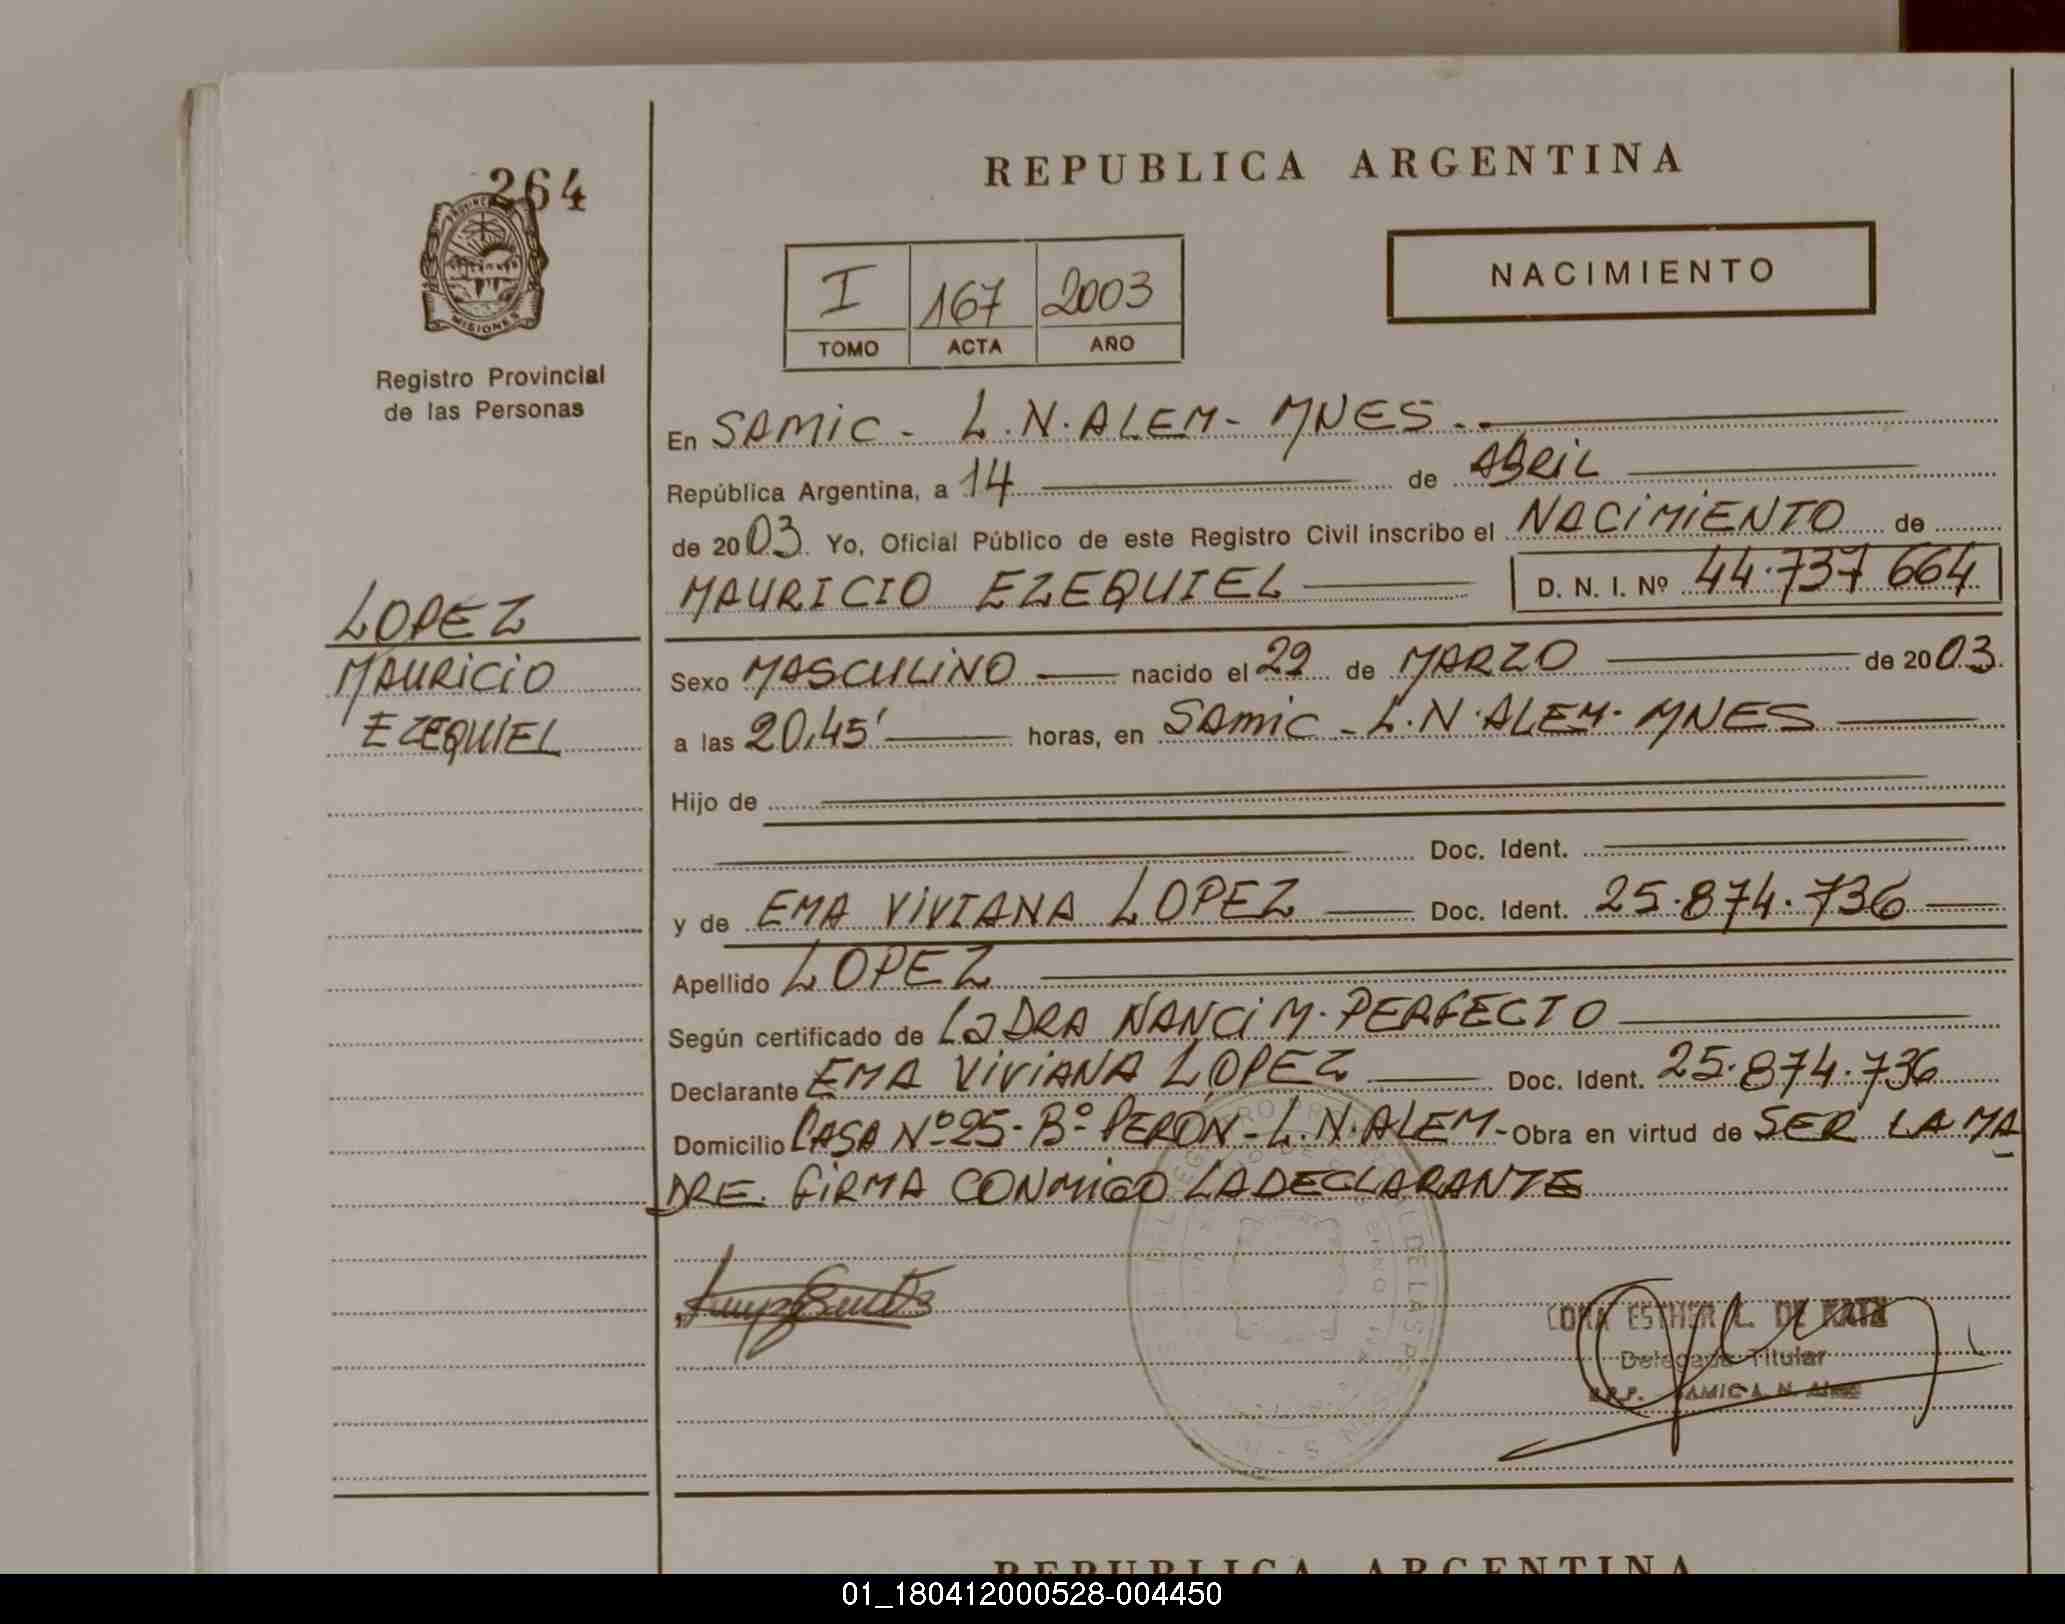 264
PROVINCIA
MISIONES
Registro Provincial
de las Personas
LOPEZ
MAURICIO
EZEQUIEL
REPUBLICA ARGENTINA
I 167 2003
TOMO ACTA AÑO
NACIMIENTO
En SAMIC - L.N.ALEM - MNES.-
República Argentina, a 14 de ABRIL
de 2003. Yo, Oficial Público de este Registro Civil inscribo el NACIMIENTO de
MAURICIO EZEQUIEL D. N. I. Nº 44.737 664
Sexo MASCULINO nacido el 29 de MARZO de 2003.
a las 20,45' horas, en SAMIC - L.N.ALEM - MNES
Hijo de
Doc. Ident.
y de EMA VIVIANA LOPEZ Doc. Ident. 25.874.736
Apellido LOPEZ
Según certificado de La DRA NANCI M. PERFECTO
Declarante EMA VIVIANA LOPEZ Doc. Ident. 25.874.736
Domicilio CASA Nº 25 - Bº PERÓN - L.N.ALEM - Obra en virtud de SER LA MA
DRE. FIRMA CONMIGO LA DECLARANTE
ESTHER L. DE
Delegada Titular
R.P.P. - SAMIC L. N. Alem
REPUBLICA ARGENTINA
01_180412000528-004450